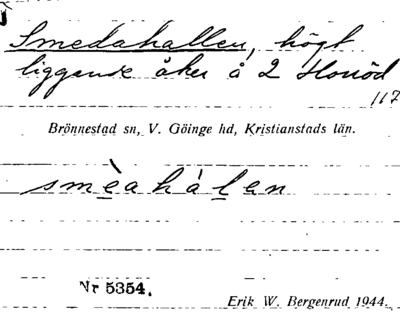 Smedahallen, högt
liggande åker å 2 Honröd
117
Brönnestad sn, V. Göinge hd, Kristianstads län.
smèahálen
Nr 5354.
Erik W. Bergenrud 1944.